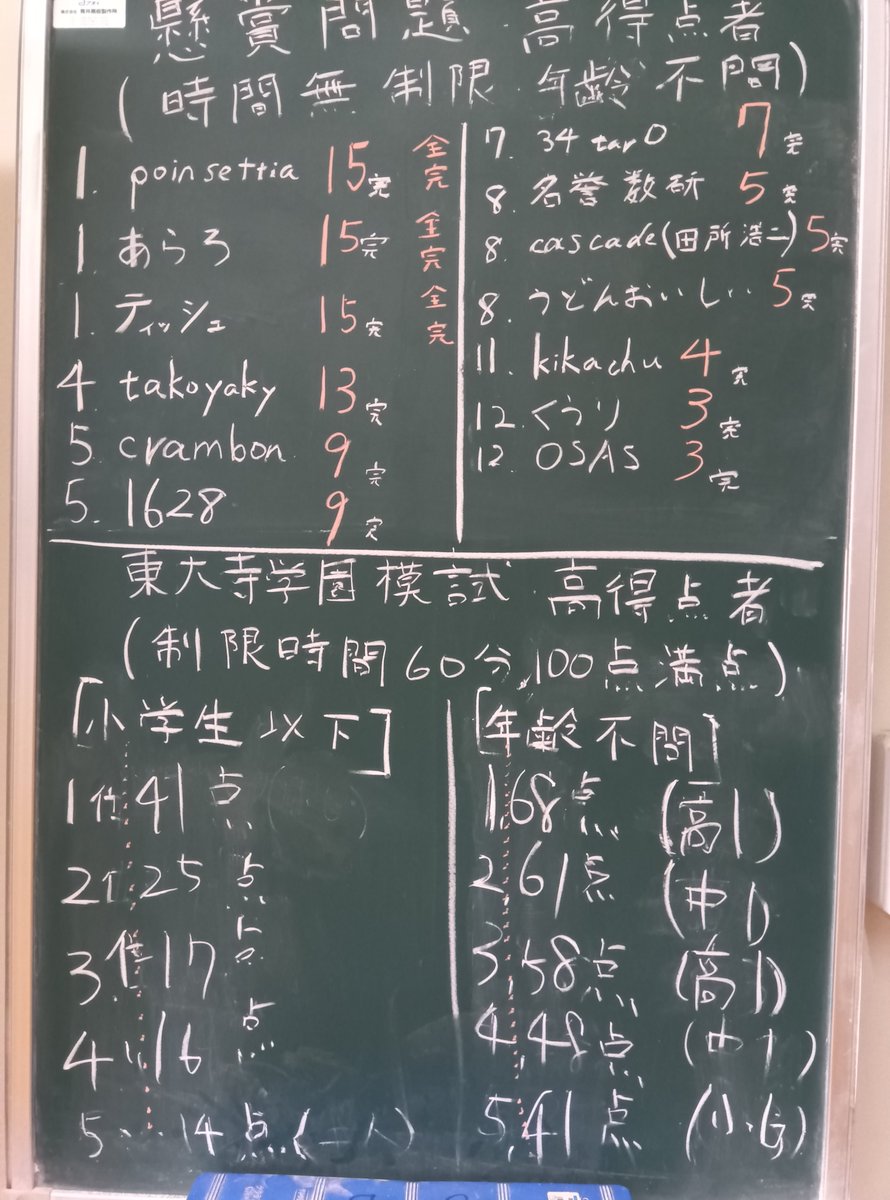 懸賞問題 高得点者
(時間無制限 年齢不問)
1. poinsettia 15完 全完
1 あらろ 15完 全完
1. ティッシュ 15完 全完
4 takoyaky 13完
5 crambon 9完
5. 1628 9完
7. 34tarO 7完
8. 名誉数研 5完
8. cascade(田所浩二) 5完
8. うどんおいしい 5完
11. kikachu 4完
12 くうり 3完
12. OSAS 3完
東大寺学園模試 高得点者
(制限時間60分, 100点満点)
[小学生以下]
1位 41点
2位 25点
3位 17点
4 16点
5 14点(二人)
[年齢不問]
1. 68点 (高1)
2 61点 (中1)
3. 58点 (高1)
4. 48点
5. 41点 (小6)